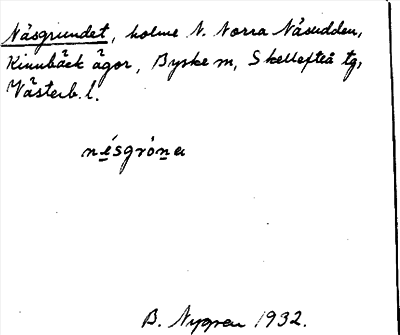 Näsgrundet, holme N. Norra Näsudden,
Kinnbäck ägor, Byske sn, Skellefteå tg,
Västerb. l.
nésgróna
B. Nygren 1932.